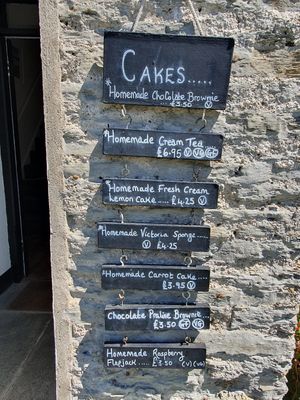 CAKES.....
*Homemade Chocolate Brownie
£3.50 Ⓥ
*Homemade Cream Tea
£6.95 Ⓥ
*Homemade Fresh Cream
Lemon Cake.... £4.25 Ⓥ
*Homemade Victoria Sponge....
Ⓥ £4.25
*Homemade Carrot Cake....
£3.95 Ⓥ
Chocolate Praline Brownie...
£3.50
Homemade Raspberry
Flapjack..... £3.50 (V)